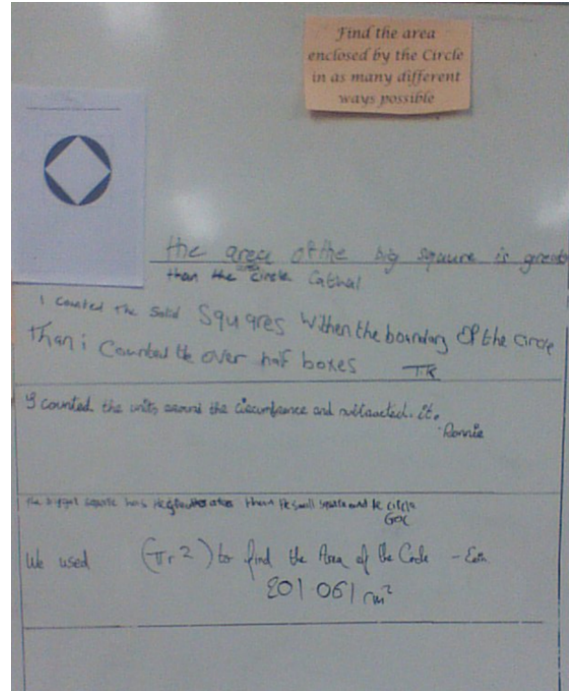 Find the area
enclosed by the Circle
in as many different
ways possible
the area of the big square is
than the circle Cathal
I counted the solid Squares within the boundary Of the circle
Than i Counted the over half boxes T.R
I counted the units around the and subtracted. it.
Ronnie
the biggest square has the than the small square and the circle
We used (πr²) to find the Area of the Circle - Eoin
201.061 m²